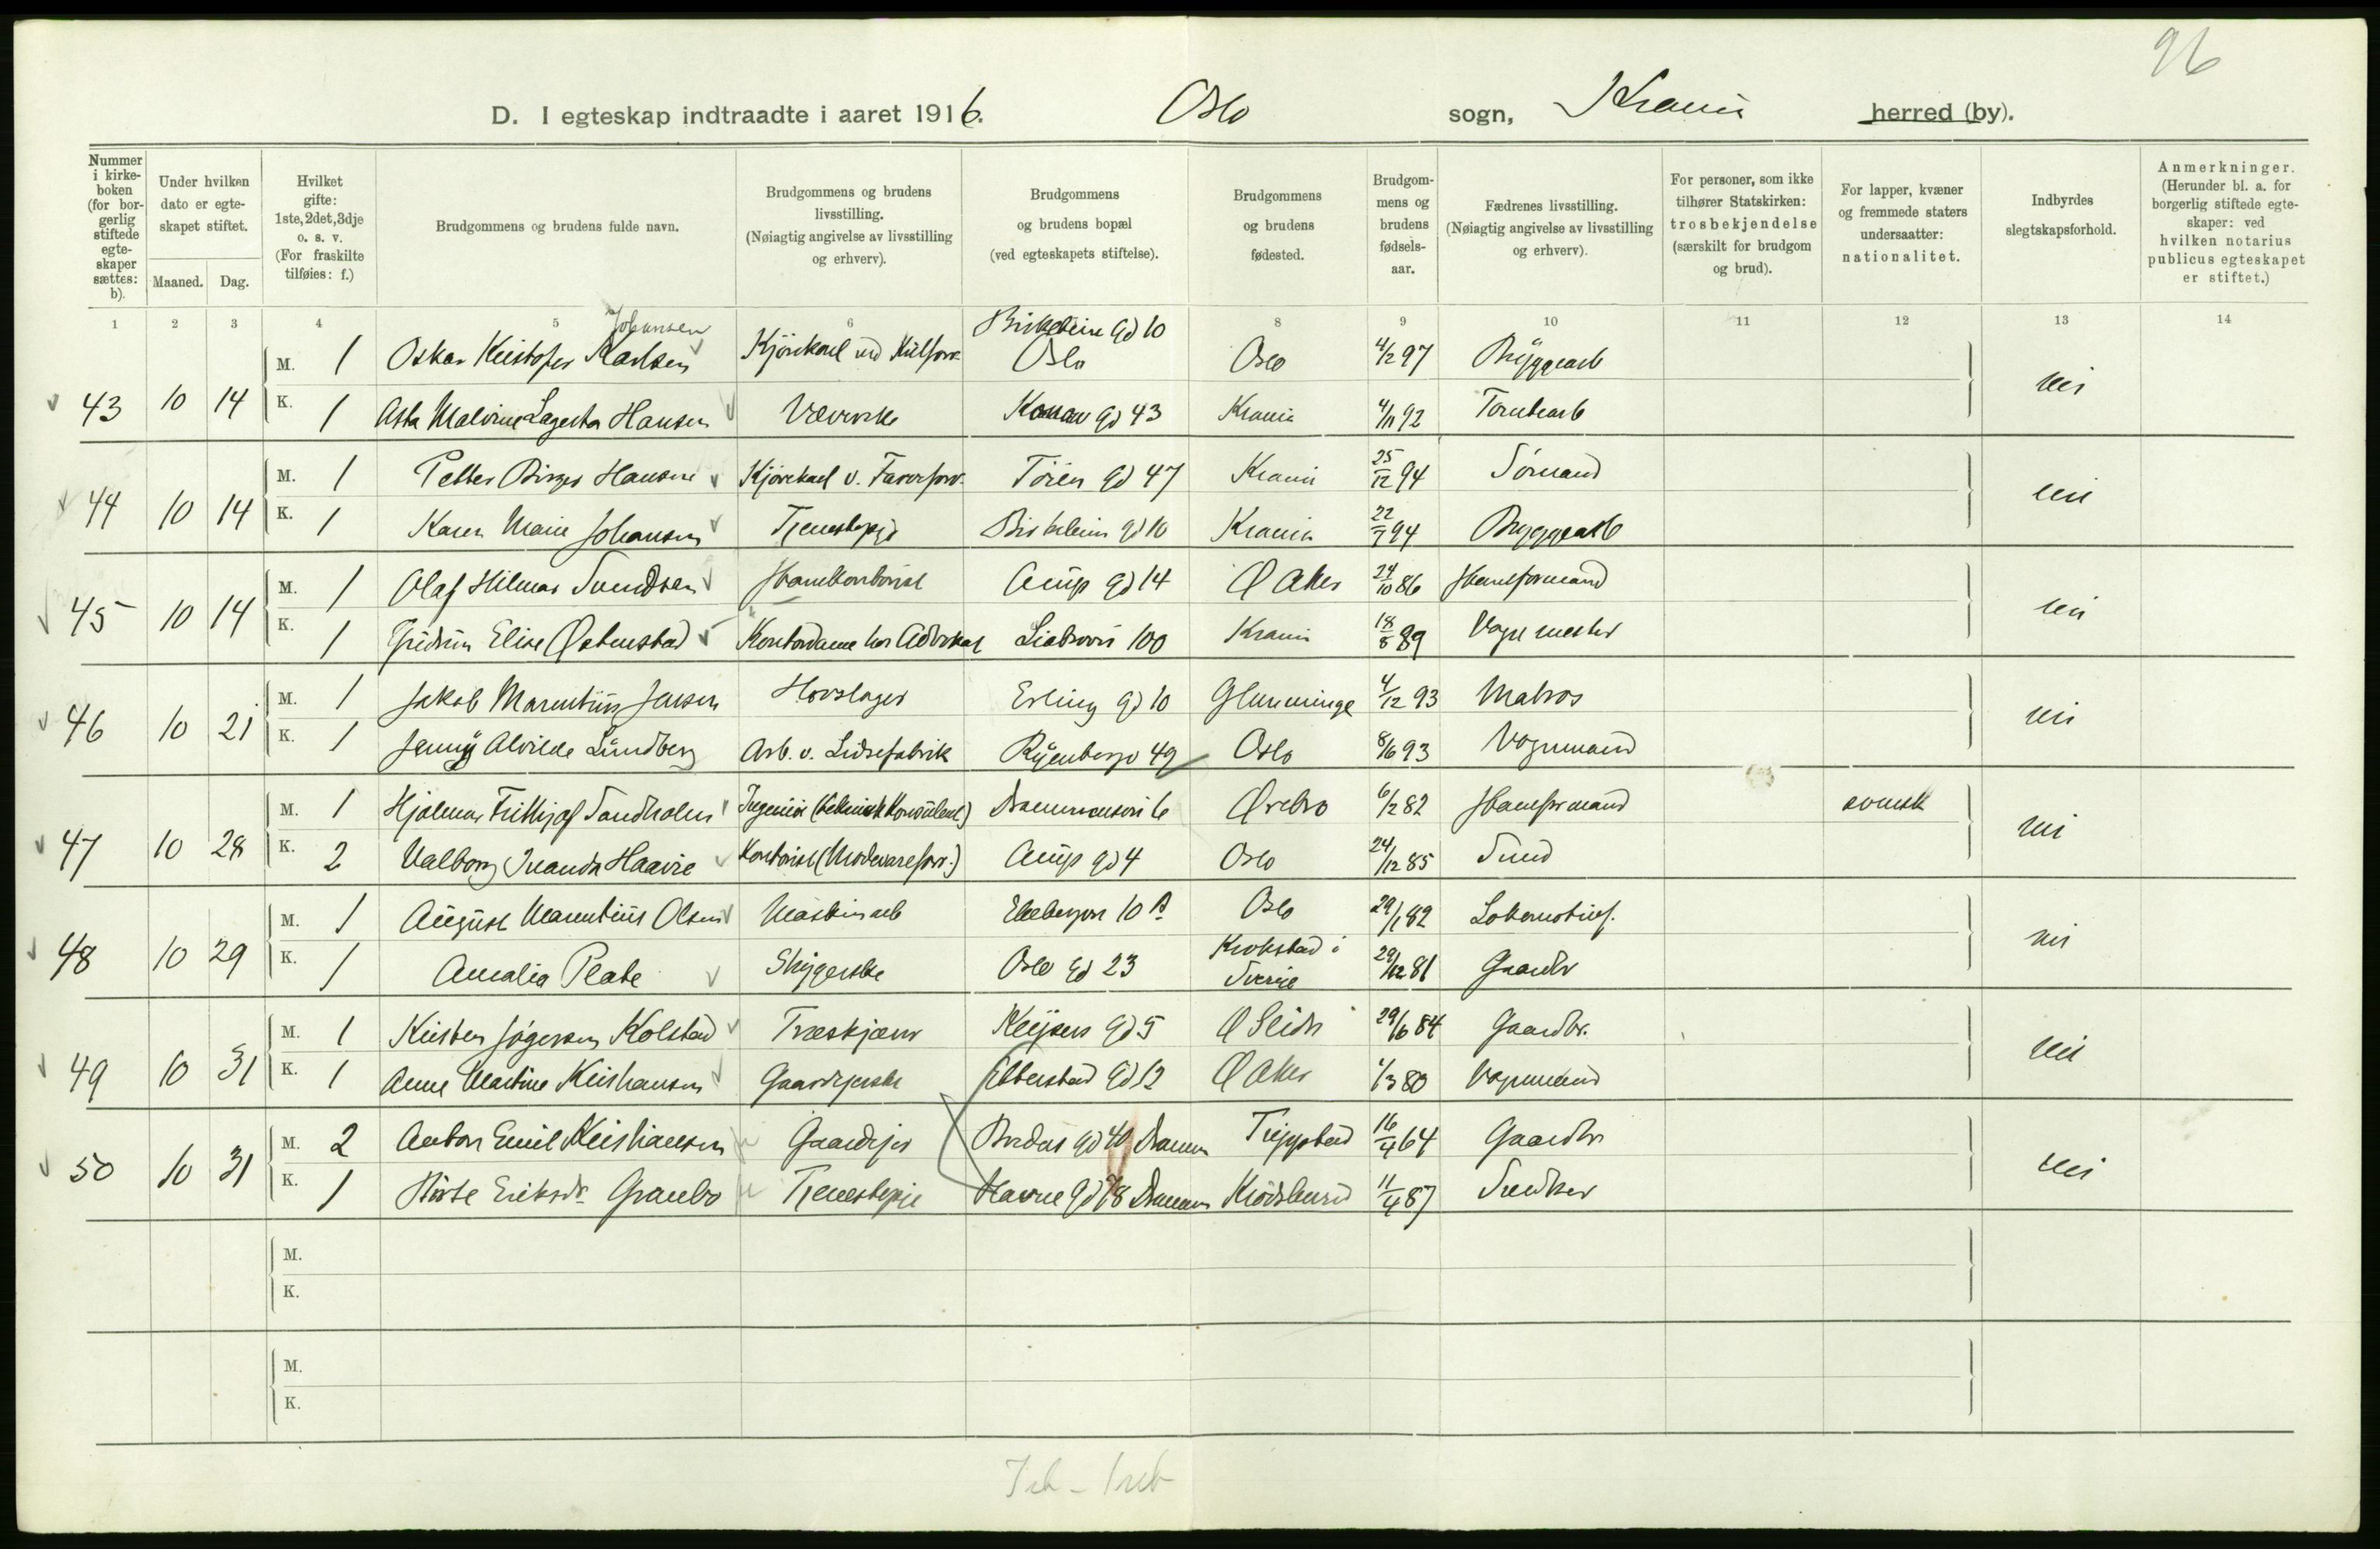 96
D. I egteskap indtraadte i aaret 1916. Oslo sogn, Krania herred (by).
Nummer i kirkeboken (for borgerlig stiftede egteskaper sættes: b).
Under hvilken dato er egteskapet stiftet.
Maaned. Dag.
Hvilket gifte: 1ste, 2det, 3dje o. s. v. (For fraskilte tilføies: f.)
Brudgommens og brudens fulde navn.
Brudgommens og brudens livsstilling. (Nøiagtig angivelse av livsstilling og erhverv).
Brudgommens og brudens bopæl (ved egteskapets stiftelse).
Brudgommens og brudens fødested.
Brudgommens og brudens fødselsaar.
Fædrenes livsstilling. (Nøiagtig angivelse av livsstilling og erhverv).
For personer, som ikke tilhører Statskirken: trosbekjendelse (særskilt for brudgom og brud).
For lapper, kvæner og fremmede staters undersaatter: nationalitet.
Indbyrdes slegtskapsforhold.
Anmerkninger. (Herunder bl. a. for borgerlig stiftede egteskaper: ved hvilken notarius publicus egteskapet er stiftet.)
1 2 3 4 5 6 8 9 10 11 12 13 14
Johansen Birkebein Gd 10
M. 1 Oskar Kristofer Karlsen Kjørekarl ved Kulforr. Oslo Oslo 4/2 97 Bryggearb
43 10 14 K. 1 Asta Malvine Lagerta Hansen Væverske gd 43 Krania 4/11 92 Tomtearb nei
M. 1 Petter Birger Hansen Kjørekarl v. Tøien gd 47 Krania 25/12 94 Sømand
44 10 14 K. 1 Karen Marie Johansen Tjenestepige Birkebein gd 10 Krania 22/7 94 Bryggearb nei
M. 1 Olaf Hilmar Svendsen gd 14 Ø Aker 24/10 86
45 10 14 K. 1 Gudrun Elise Østenstad Kontordame hos Advokat 100 Krania 18/8 89 Vognmester nei
M. 1 Jakob Marentius Jensen Hovslager Erling gd 10 Glemminge 4/12 93 Matros
46 10 21 K. 1 Jenny Alvilde Lundberg Arb. v. Lidsefabrik Ryenbergv 49 Oslo 8/6 93 Vognmand nei
M. 1 Hjalmar Frithjof Sandholm Ingeniør (teknisk Konsulent) Drammensvei 6 Ørebro 6/2 82 svensk
47 10 28 K. 2 Valborg Haavie Kontorist (Modevareforr.) gd 4 Oslo 24/12 85 nei
M. 1 August Marentius Olsen Maskinarb Ekebergvn 10 A Oslo 29/1 82 Lokomotivf.
48 10 29 K. 1 Amalia Plate Oslo Gd 23 Krokstad i Sverige 29/12 81 Gaardbr nei
M. 1 Kristen Jørgensen Kolstad Træskjærer Keysers Gd 5 Ø Slidre 29/6 84 Gaardbr.
49 10 31 K. 1 Anne Martine Kristiansen Gaardejerske Ebberstad Gd 12 Ø Aker 1/3 80 Vognmand nei
M. 2 Anton Emil Kristiansen Gaardejer gd 40 Dramm Trøgstad 16/4 64 Gaardbr
50 10 31 K. 1 Eriksdr Granbo Tjenestepige Havne Gd 78 Drammen Krødsherred 11/4 87 Snedker nei
M.
K.
M.
K.